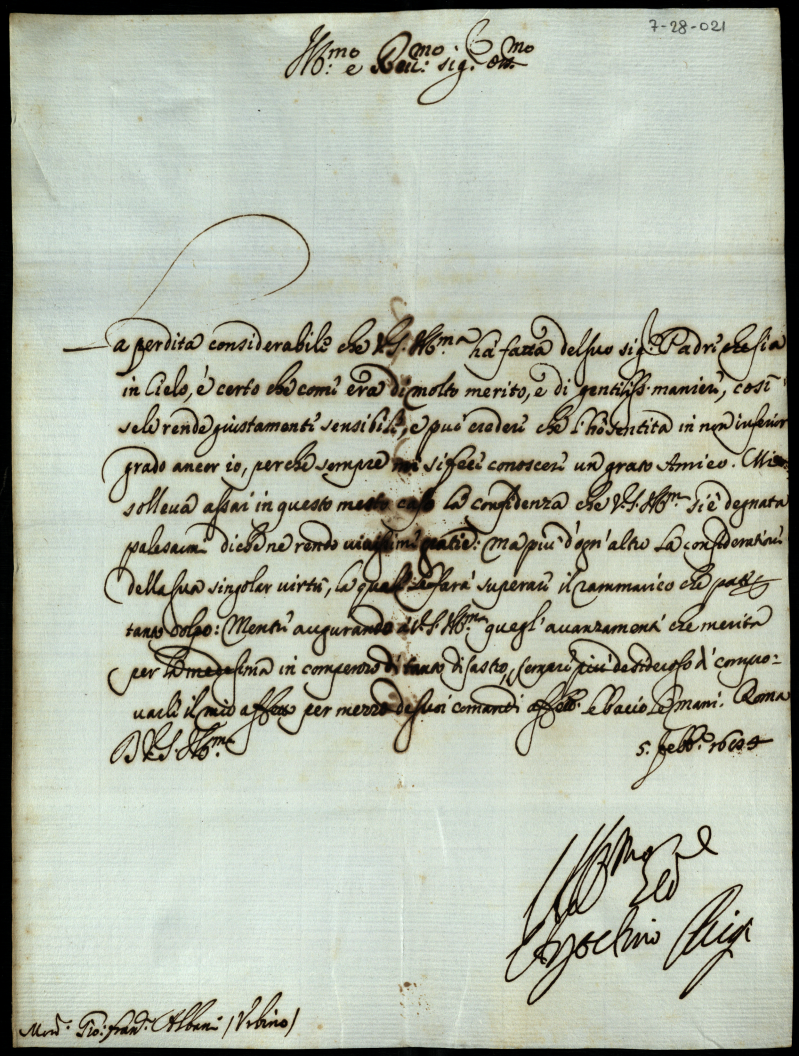 7-28-021
Ill.mo e Reu.mo sig.r Oss.mo
La perdita considerabile che V.S. Ill.ma há fatta del suo sig.r Padre che sia
in Cielo, é certo che come era di molto merito, e di gentiliss.e maniere, cosi
se le rende giustamente sensibile, e può credere che l'hò sentita in non inferior
grado ancor io, perche sempre mi si fece conoscere un grato Amico. Mi
solleua assai in questo mesto caso la confidenza che V.S. Ill.ma si é degnata
palesarmi di che ne rendo viuissime gratie: ma più d'ogn'altro la consideratione
della sua singolar virtù, la quale le farà superare il rammarico che
tanto colpo: Mentre augurando à V.S. Ill.ma quegl'auanzamenti che merita
per la medesima in compenso di tanto disastro, sempre più desideroso di compro-
uarli il mio affetto per mezzo de suoi comandi aff.te e bacio le mani. Roma
5. Febb.o
D V.S. Ill.ma
Mons.r Gio: Fran.co Albani (Vrbino)